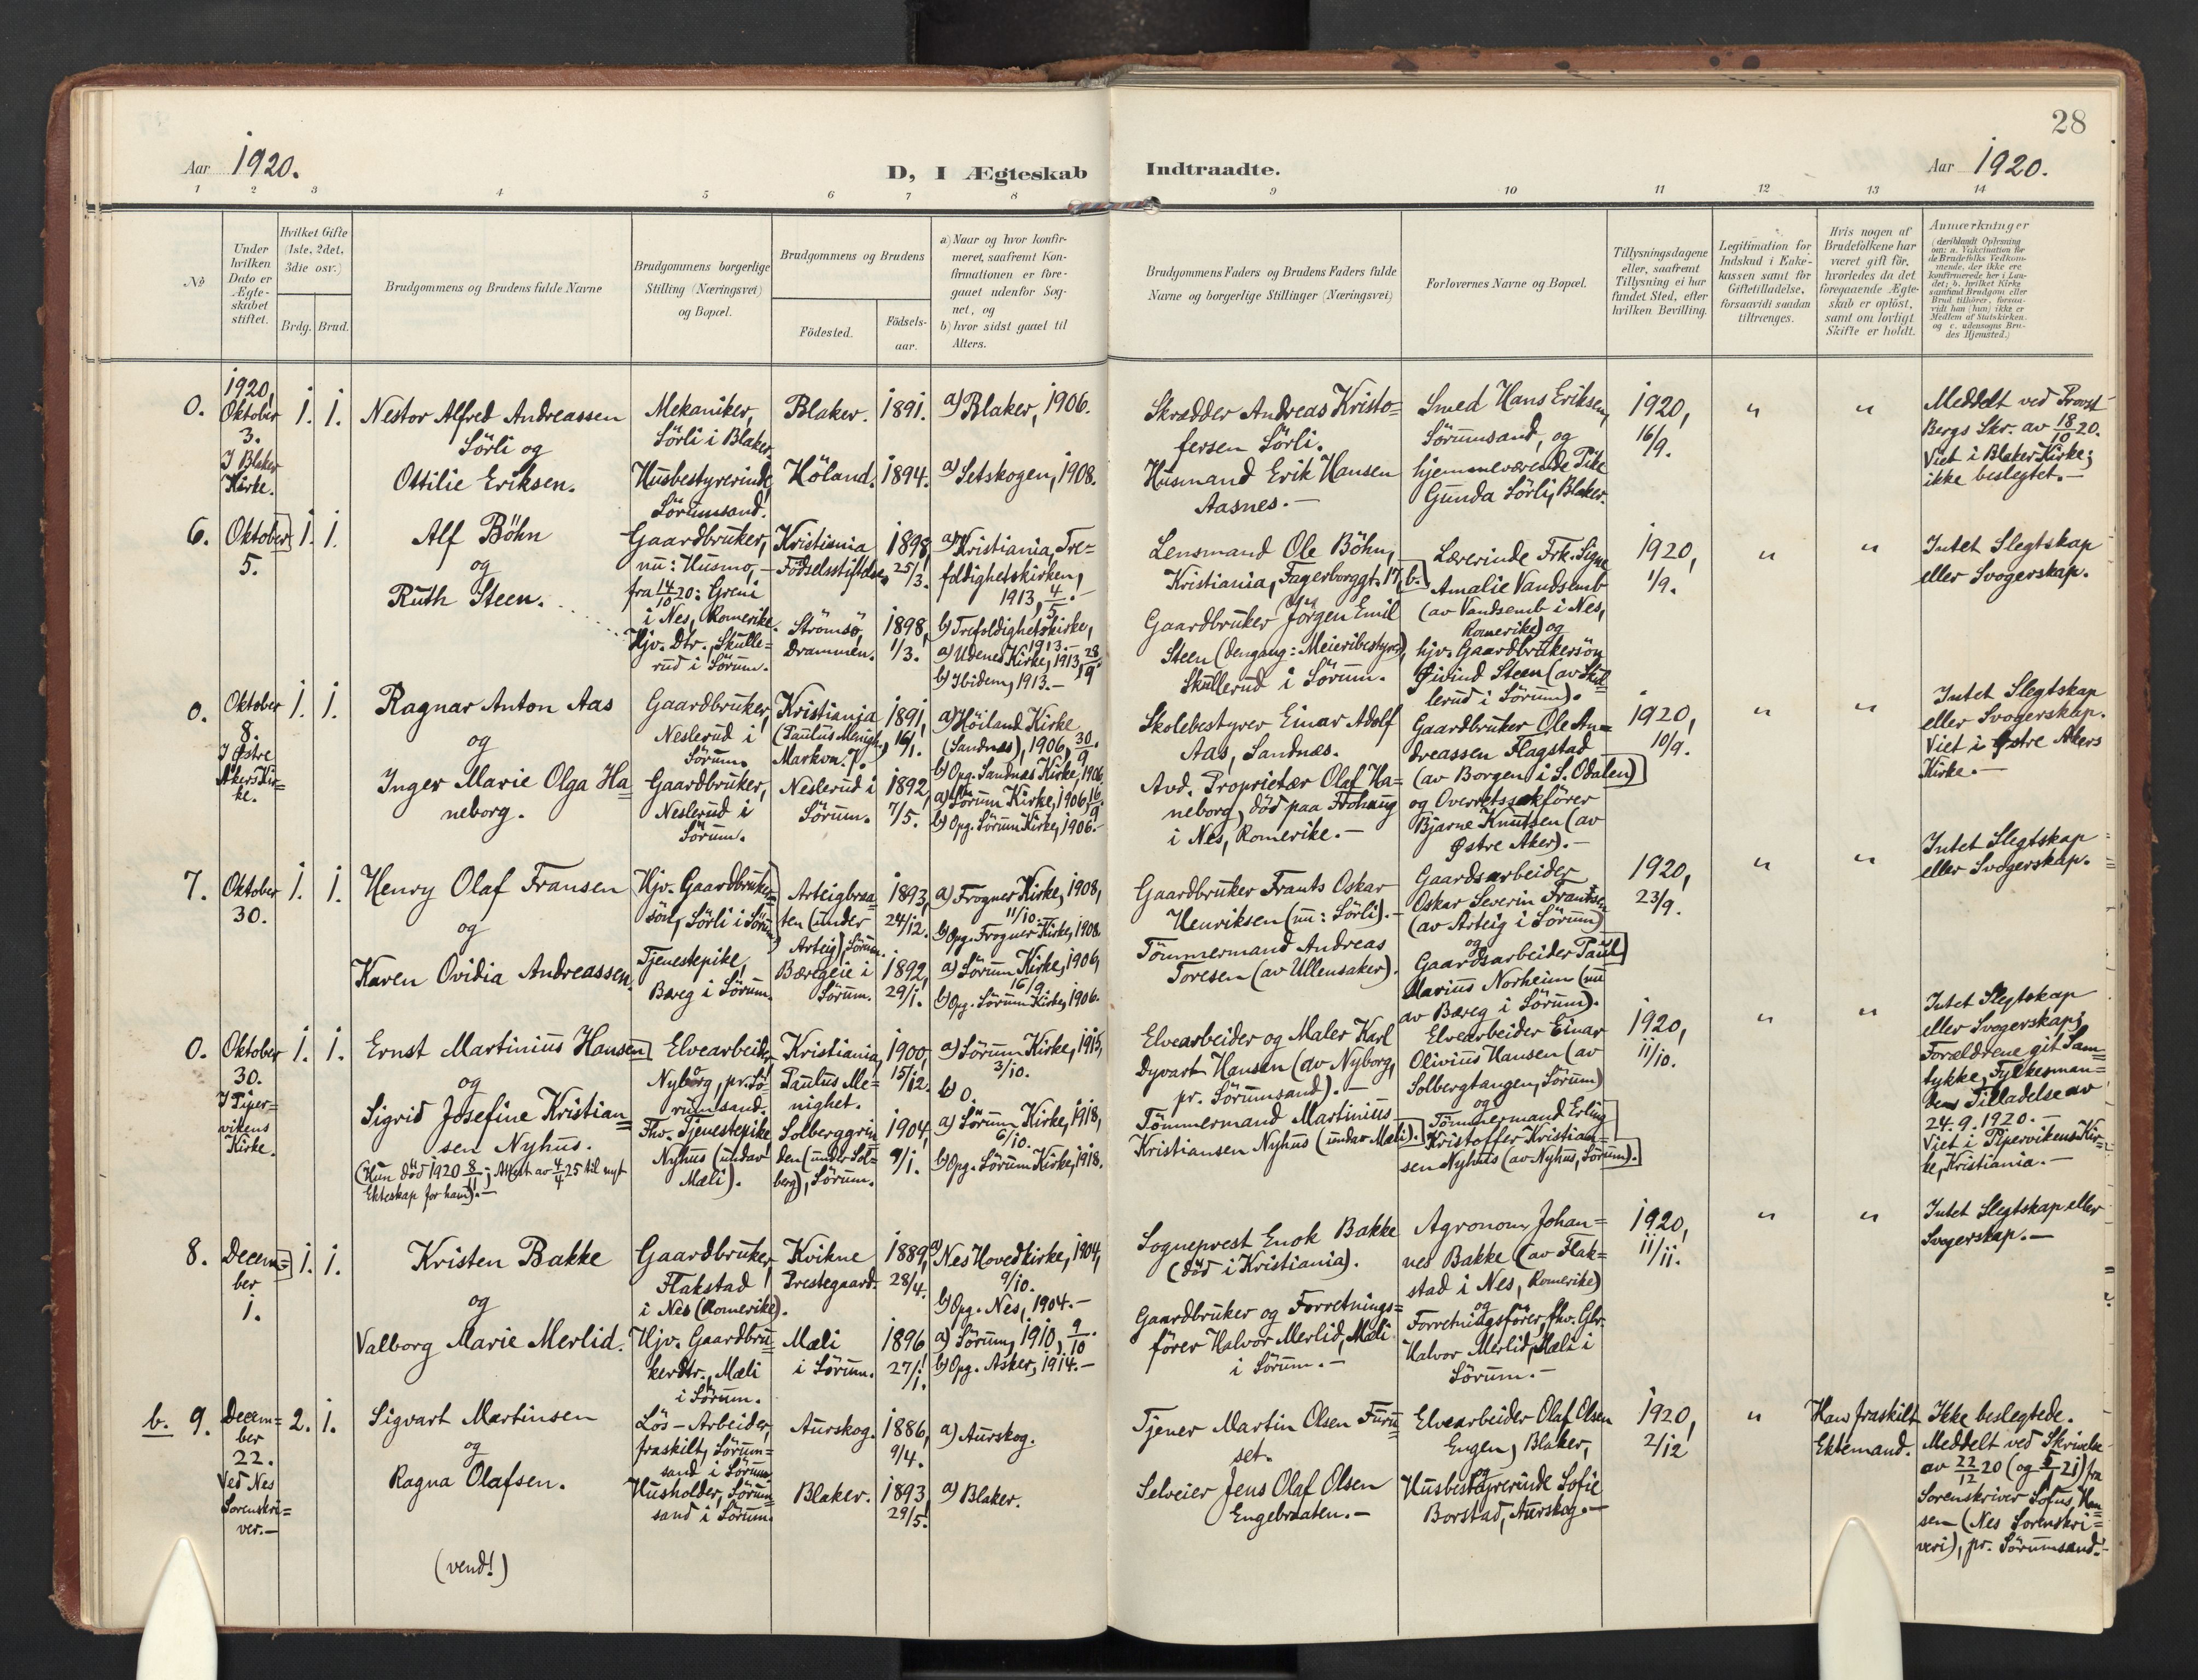 28
Aar 1920.
D, I Ægteskab Indtraadte.
Aar 1920.
1 2 3 4 5 6 7 8 9 10 11 12 13 14
No
Under hvilken Dato er Ægte-skabet stiftet.
Hvilket Gifte (1ste, 2det, 3die osv.)
Brdg. Brud.
Brudgommens og Brudens fulde Navne
Brudgommens borgerlige Stilling (Næringsvei) og Bopæl.
Brudgommens og Brudens
Födested.
Födsels-aar.
a) Naar og hvor konfir-meret, saafremt Kon-firmationen er fore-gaaet udenfor Sog-net, og
b) hvor sidst gaaet til Alters.
Brudgommens Faders og Brudens Faders fulde Navne og borgerlige Stillinger (Næringsvei)
Forlovernes Navne og Bopæl.
Tillysningsdagene eller, saafremt Tillysning ei har fundet Sted, efter hvilken Bevilling.
Legitimation for Indskud i Enke-kassen samt for Giftetilladelse, forsaavidt saadan tiltrænges.
Hvis nogen af Brudefolkene har været gift för, hvorledes da det foregaaende Ægte-skab er oplöst, samt om lovligt Skifte er holdt.
Anmærkninger
(deriblandt Oplysning om: a. Vaksination for de Brudefolks Vedkom-mende, der ikke ere konfirmerede her i Lan-det; b. hvilket Kirke-samfund Brudgom eller Brud tilhörer, forsaa-vidt han (hun) ikke er Medlem af Statskirken, og c. udensogns Bru-des Hjemsted.)
0. 1920, Oktober 3. I Blaker Kirke. 1. 1.
Nestor Alfred Andreassen
Sörli og
Ottilie Eriksen.
Mekaniker,
Sörli i Blaker.
Husbestyrerinde,
Sörumsand.
Blaker. 1891. a) Blaker, 1906.
Höland. 1894. a) Setskogen, 1908.
Skrædder Andreas Kristo=
fersen Sörli.
Husmand Erik Hansen
Aasnes.-
Smed Hans Eriksen,
Sörumsand, og
hjemmeværende Pike
Gunda Sörli, Blaker.
1920,
16/9.
" "
Meddelt ved Provst
Bergs Skr. av 18/10 20.
Viet i Blaker Kirke;
ikke beslegtet.-
6. Oktober 5. 1. 1.
Alf Böhn
og
Ruth Steen.
Gaardbruker,
nu: Husmo,-
fra 14/10 20: Greni
i Nes, Romerike.
Hjv. Dtr., Skulle=
rud i Sörum.
Kristiania
Födselsstiftelse,
1898,
25/3.
Strömsö,
Drammen.
1898,
1/3.
a) Kristiania, Tre=
foldighetskirken,
1913, 4/5.-
b) Trefoldighetskirke,
1913.-
a) Udenes Kirke, 1913, 28/9
b) Ibidem, 1913.-
Lensmand Ole Böhn,
Kristiania, Fagerborggt. 17, b.
og
Gaardbruker Jörgen Emil
Steen (dengang: Meieribestyrer),
Skullerud i Sörum.
Lærerinde Frk. Signe
Amalie Vandsemb
(av Vandsemb i Nes,
Romerike) og
hjv. Gaardbrukersön
Øivind Steen (av Skul=
lerud i Sörum).
1920,
1/9.
" "
Intet Slegtskap
eller Svogerskap.
0. Oktober 8. I Østre Akers Kir=ke. 1. 1.
Ragnar Anton Aas
og
Inger Marie Olga Ha=
neborg.
Gaardbruker,
Neslerud i
Sörum.
Gaardbruker,
Neslerud i
Sörum.
Kristiania
(Paulus Menigh.,
Markvn. 7).
1891,
16/1.
Neslerud i
Sörum.
1892,
7/5.
a) Höiland Kirke
(Sandnes), 1906, 30/9.
b) Opg. Sandnes Kirke, 1906.
a) Sörum Kirke, 1906, 16/9.
b) Opg. Sörum Kirke, 1906.-
Skolebestyrer Einar Adolf
Aas, Sandnæs.
Avd. Proprietær Olaf Ha=
neborg, död paa Frohaug
i Nes, Romerike.-
Gaardbruker Ole An=
dreassen Flagstad
(av Borgen i S. Odalen)
og Overretssakförer
Bjarne Knutsen (av
Østre Aker).-
1920,
10/9.
" "
Intet Slegtskap
eller Svogerskap.
Viet i Østre Akers
Kirke.-
7. Oktober 30. 1. 1.
Henry Olaf Fransen
og
Karen Ovidia Andreassen.
Hjv. Gaardbruker=
sön, Sörli i Sörum
Tjenestepike,
Bæreg i Sörum.
Arteigbraa=
ten (under
Arteig), Sörum.
1893,
24/12.
Bæregeie i
Sörum.
1892,
29/1.
a) Frogner Kirke, 1908,
11/10.
b) Opg. Frogner Kirke, 1908.
a) Sörum Kirke, 1906,
16/9.
b) Opg. Sörum Kirke, 1906.
Gaardbruker Frants Oskar
Henriksen (nu: Sörli).-
Tömmermand Andreas
Toresen (av Ullensaker).
Gaardsarbeider
Oskar Severin Frantsen
(av Arteig i Sörum)
og
Gaardsarbeider Paul
Marius Norheim (nu
av Bæreg i Sörum).
1920,
23/9.
" "
Intet Slegtskap
eller Svogerskap.
0. Oktober 30. I Piper=vikens Kirke. 1. 1.
Ernst Martinius Hansen
og
Sigrid Josefine Kristian=
sen Nyhus.
(Hun död 1920 8/11; Attest av 4/4 25 til nyt
Ekteskap for ham).-
Elvearbeider,
Nyborg, pr. Sö=
rumsand.
Fhv. Tjenestepike
Nyhus (under
Mæli).
Kristiania,
Paulus Me=
nighet.
1900,
15/12.
Solberggrin=
den (under Sol=
berg), Sörum.
1904,
9/1.
a) Sörum Kirke, 1915,
3/10.
b) 0.
a) Sörum Kirke, 1918,
6/10.
b) Opg. Sörum Kirke, 1918.
Elvearbeider og Maler Karl
Dyvart Hansen (av Nyborg,
pr. Sörumsand).-
Tömmermand Martinius
Kristiansen Nyhus (under Mæli).
Elvearbeider Einar
Olivius Hansen (av
Solbergtangen, Sörum)
og
Tömmermand Erling
Kristoffer Kristian=
sen Nyhus (av Nyhus, Sörum).
1920,
11/10.
" "
Intet Slegtskap
eller Svogerskap;
Forældrene git Sam=
tykke, Fylkesman=
dens Tilladelse av
24.9.1920.-
Viet i Pipervikens Kir=
ke, Kristiania.-
8. Decem=ber 1. 1. 1.
Kristen Bakke
og
Valborg Marie Merlid.
Gaardbruker,
Flakstad
i Nes (Romerike).
Hjv. Gaardbru=
kerdtr., Mæli
i Sörum.
Kvikne
Prestegaard.
1889,
28/4.
Mæli
i Sörum.
1896,
27/1.
a) Nes Hovedkirke, 1904,
9/10.
b) Opg. Nes, 1904.-
a) Sörum, 1910, 9/10.
b) Opg. Asker, 1914.-
Sogneprest Enok Bakke
(död i Kristiania).
Gaardbruker og Forretnings=
förer Halvor Merlid, Mæli
i Sörum.-
Agronom Johan=
nes Bakke (av Flak=
stad i Nes, Romerike)
og
Forretningsförer, fhv. Gbr.
Halvor Merlid, Mæli i
Sörum.-
1920,
11/11.
" "
Intet Slegtskap eller
Svogerskap.-
b. 9. Decem=ber 22. Ved Nes Sorenskri=ver.- 2. 1.
Sigvart Martinsen
og
Ragna Olafsen.
Lös-Arbeider,
fraskilt, Sörum=
sand i Sörum
Husholder, Sörum=
sand i Sörum.
Aurskog. 1886,
9/4.
Blaker. 1893,
29/5.
a) Aurskog.
a) Blaker.
Tjener Martin Olsen Furu=
set.
Selveier Jens Olaf Olsen
Engebraaten.-
Elvearbeider Olaf Olsen
Engen, Blaker,
og
Husbestyrerinde Sofie
Borstad, Aurskog.-
1920,
2/12
"
Han fraskilt
Ektemand.
Ikke beslegtede.
Meddelt ved Skrivelse
av 22/12 20 (og 21) fra
Sorenskriver Sofus Han=
sen (Nes Sorenskri=
veri), pr. Sörumsand.-
(vend!)